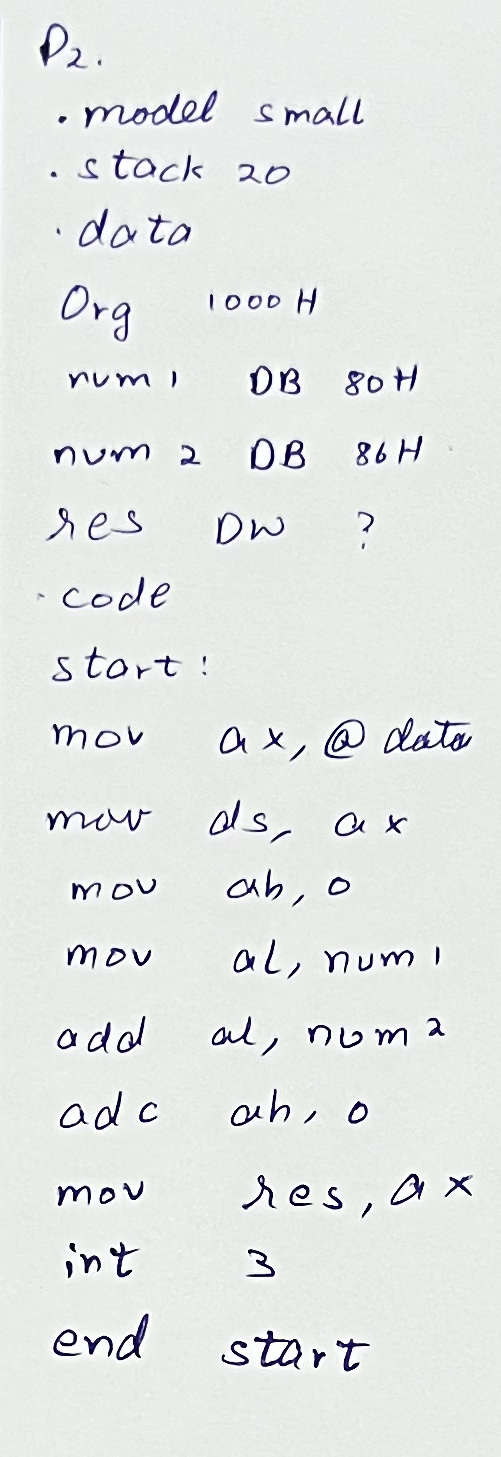 P2.
.model small
.stack 20
.data
Org 1000H
num1 DB 80H
num2 DB 86H
res DW ?
.code
start:
mov ax, @data
mov ds, ax
mov ah, 0
mov al, num1
add al, num2
adc ah, 0
mov res, ax
int 3
end start